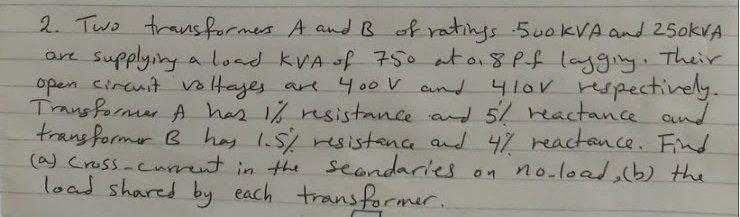 2. Two transformers A and B of ratings 500 KVA and 250KVA
are supplying a load KVA of 750 at 0.8 Pf lagging. Their
open circuit voltages are 400 V and 410V respectively.
Transformer A has 1% resistance and 5% reactance and
transformer B has 1.5% resistance and 4% reactance. Find
(a) Cross-current in the secondaries on no-load, (b) the
load shared by each transformer.